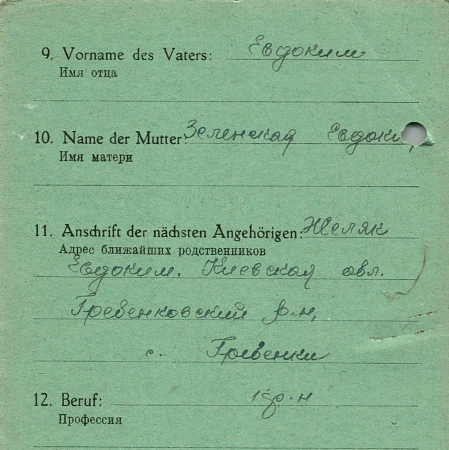 9. Vorname des Vaters: Евдоким
Имя отца
10. Name der Mutter: Зеленская Евдоки
Имя матери
11. Anschrift der nächsten Angehörigen: Желяк
Адрес ближайших родственников
Евдоким. Киевская обл.
Гребенковский р-н,
с. Гребенки
12. Beruf: кр-н
Профессия